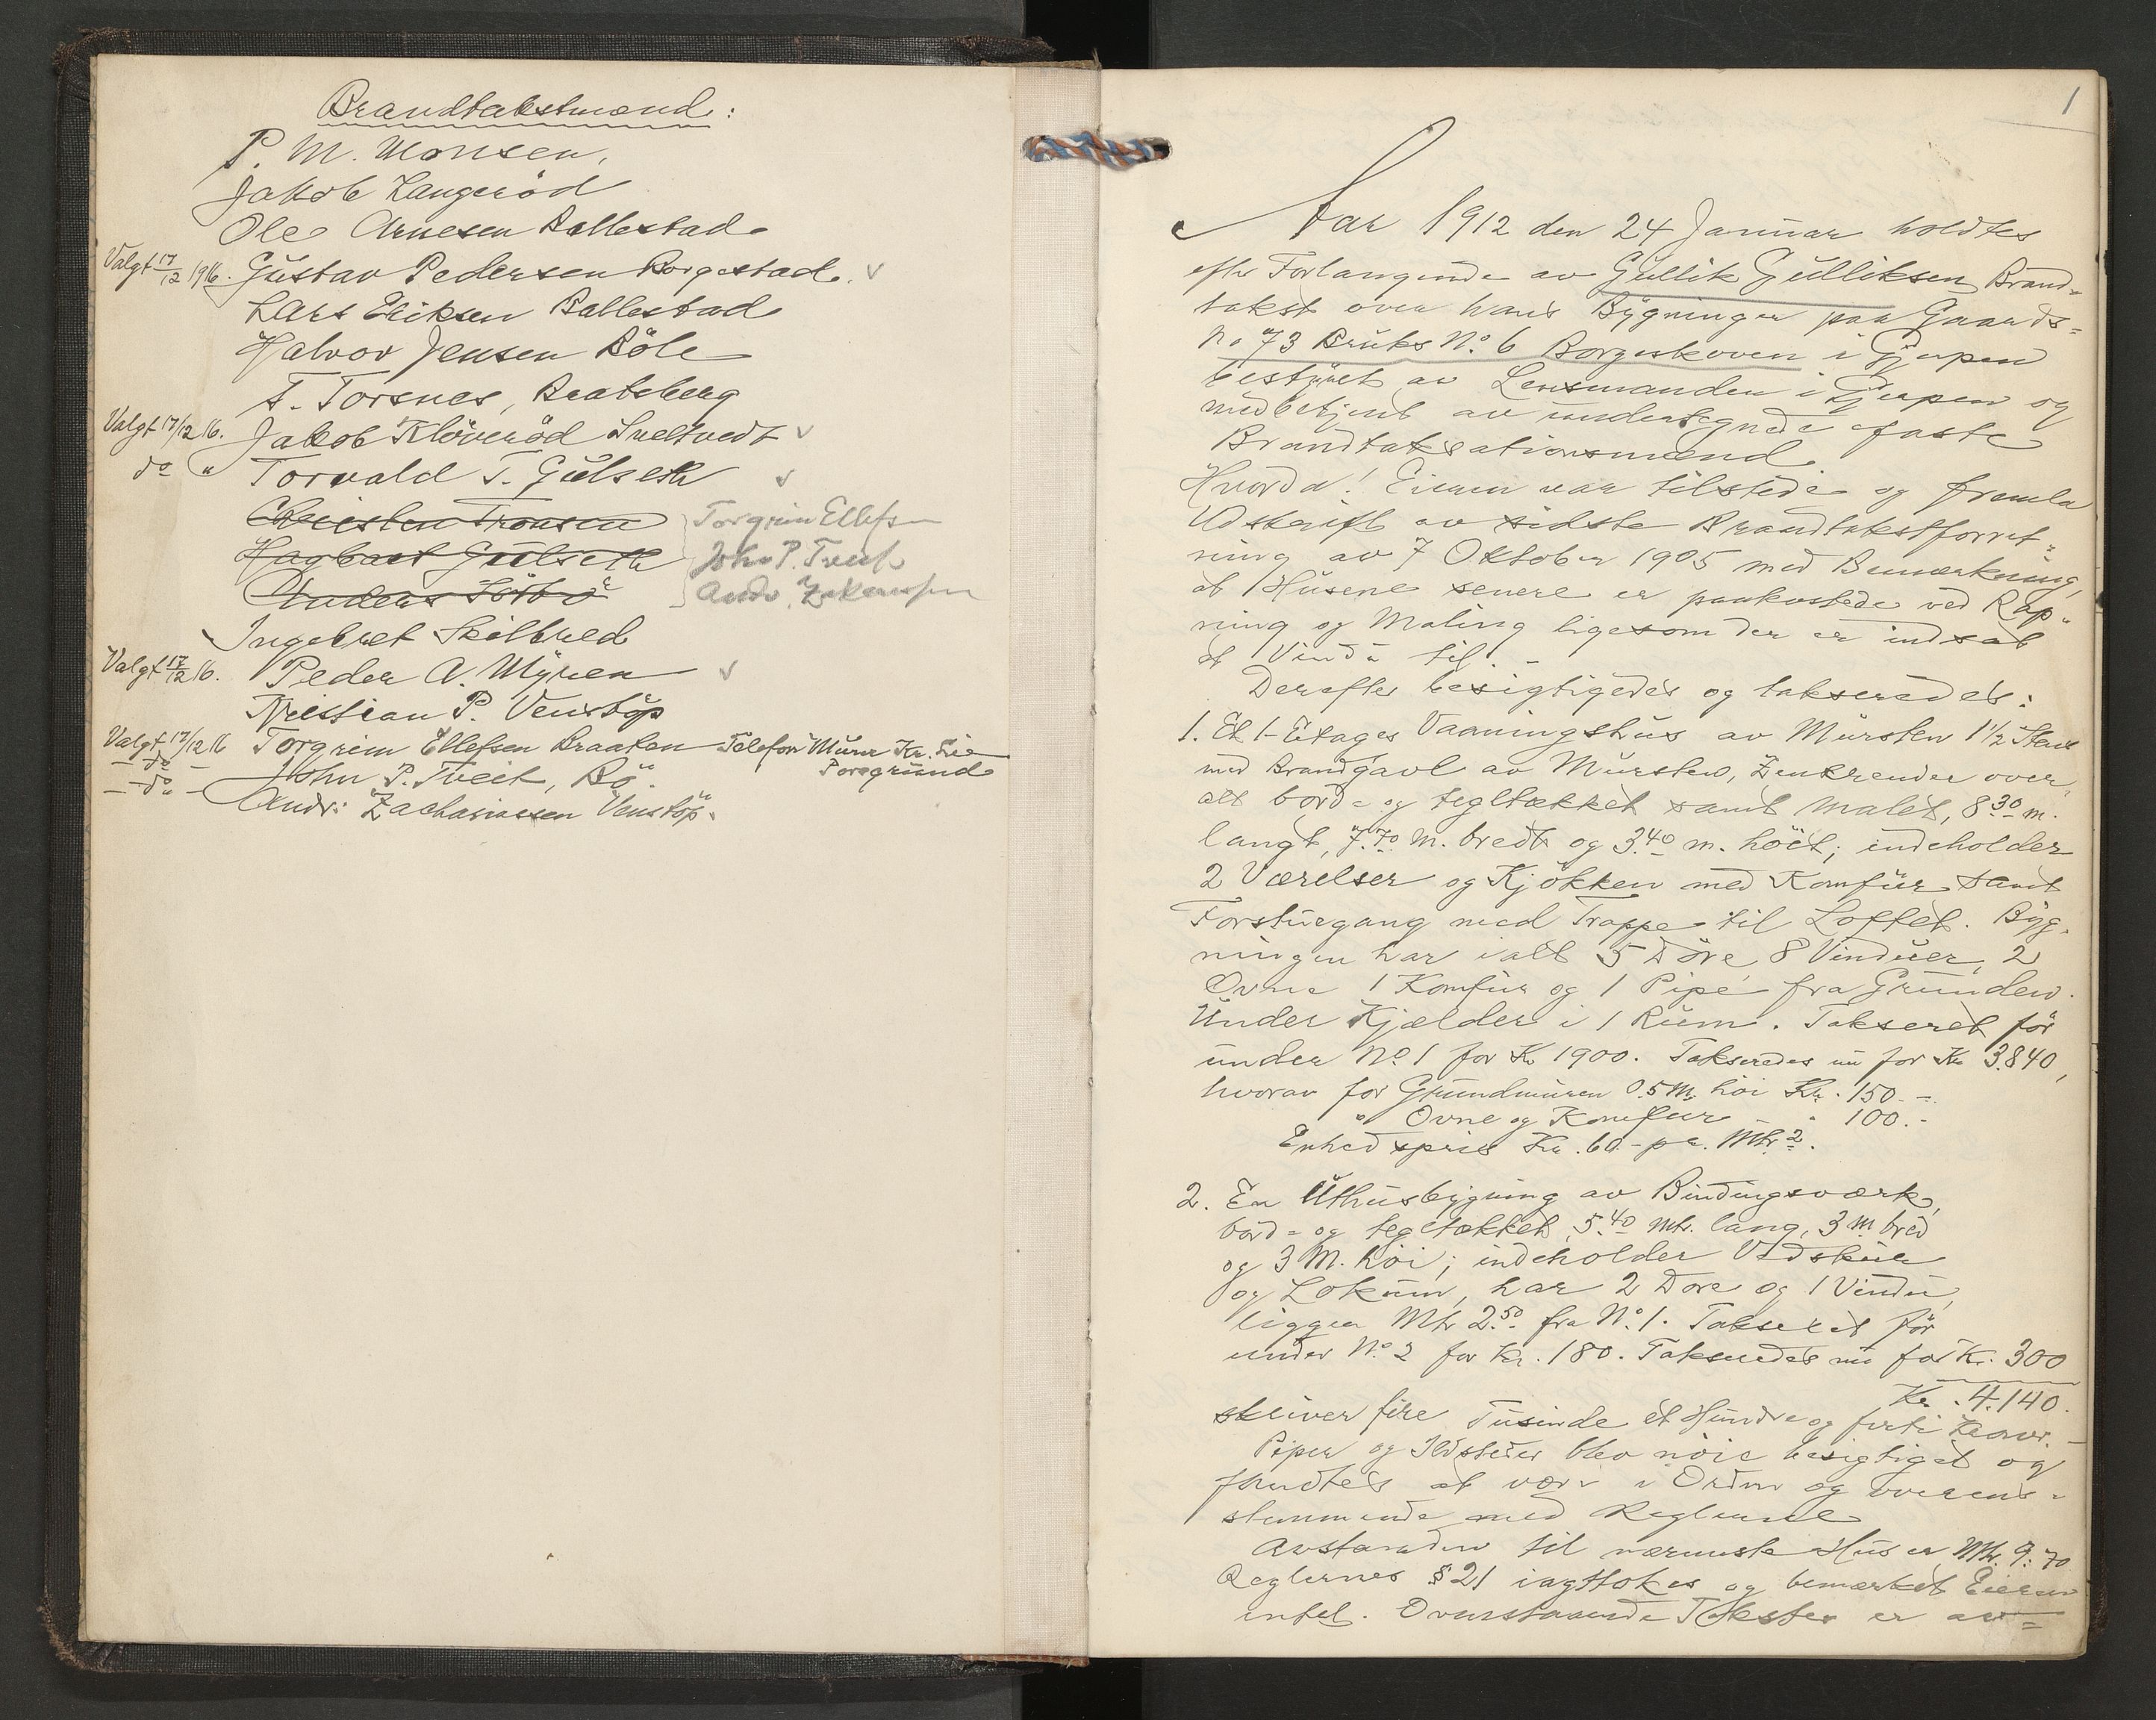 Brandtakstmænd:
P. M. Monsen,
Jakob Langerød
Ole Arnesen Ballestad
Valgt 17/12 1916. Gustav Pedersen Borgestad. v
Lars Eriksen Ballestad
Halvor Jensen Böle
T. Torsnes, Bratsberg
Valgt 17/12 16. Jakob Klöveröd Sneltvedt v
do " Torvald T. Gulseth v
Christen Tronsen Torgrim Ellefsen
Hagbart Gulseth John P. Tveit
Anders Zakariassen
Ingebret Skilbred
Valgt 17/12 16. Peder A. Myren v
Kristian P. Venstöp
Valgt 17/12 16 Torgrim Ellefsen Braaten Telefon Murer Kr. Lie
Porsgrund
- do - John P. Tveit, Bö
- do - Andr: Zachariassen Venstöp.
1
Aar 1912 den 24 Januar holdtes
efter Forlangende av Gullik Gulliksen Brand-
takst over hans Bygninger paa Gaards-
No 73 Bruks No. 6 Borgeskoven i Gjerpen
bestyret av Lensmanden i Gjerpen og
medbetjent av undertegnede faste
Brandtaksationsmænd.
Hvorda! Eieren var tilstede og fremla
Udskrift av sidste Brandtakstforret-
ning av 7 Oktober 1905 med Bemærkning,
at Husene senere er paakostede ved Rap-
ning og Maling ligesom der er indsat
et Vindu til. -
Derefter besigtigedes og takseredes:
1. Et 1-Etages Vaaningshus av Mursten 1 1/2 Sten
med Brandgavl av Mursten, Zinkrender over-
alt bord- og tegltækket samt malet, 8.30 m.
langt, 7.70 m. bredt og 3.40 m. höit; indeholder
2 Værelser og Kjökken med Komfur samt
Forstuegang med Trappe til Loftet. Byg-
ningen har ialt 5 Döre 8 Vinduer, 2
Ovne 1 Komfur og 1 Pipe fra Grunden.
Under Kjælder i 1 Rum. Takseret för
under No. 1 for Kr 1900. Takseredes nu for Kr 3.840,
hvorav for Grundmuren 0.5 M. höi Kr. 150.-
" Ovne og Komfur - " 100.-
Enhedspris Kr. 60.- pr. Mtr2.
2. En Uthusbygning av Bindingsværk,
bord- og tegltækket, 5.40 mtr. lang, 3 m bred
og 3 M. höi; indeholder Vedskur
og Lokum, har 2 Döre og 1 Vindu,
ligger Mtr 2.50 fra No. 1. Takseret för
under No. 2 for Kr. 180. Takseredes nu for Kr. 300
Kr. 4.140.
skriver fire Tusinde et Hundre og firti Kroner. -
Piper og Ildsteder blev nöie besigtiget og
fandtes at være i Orden og overens-
stemmende med Reglerne
Avstanden til nærmeste Hus er Mtr. 9.70
Reglernes § 21 iagttokes og bemerket Eieren
intet. Ovenstaaende Takster er av-